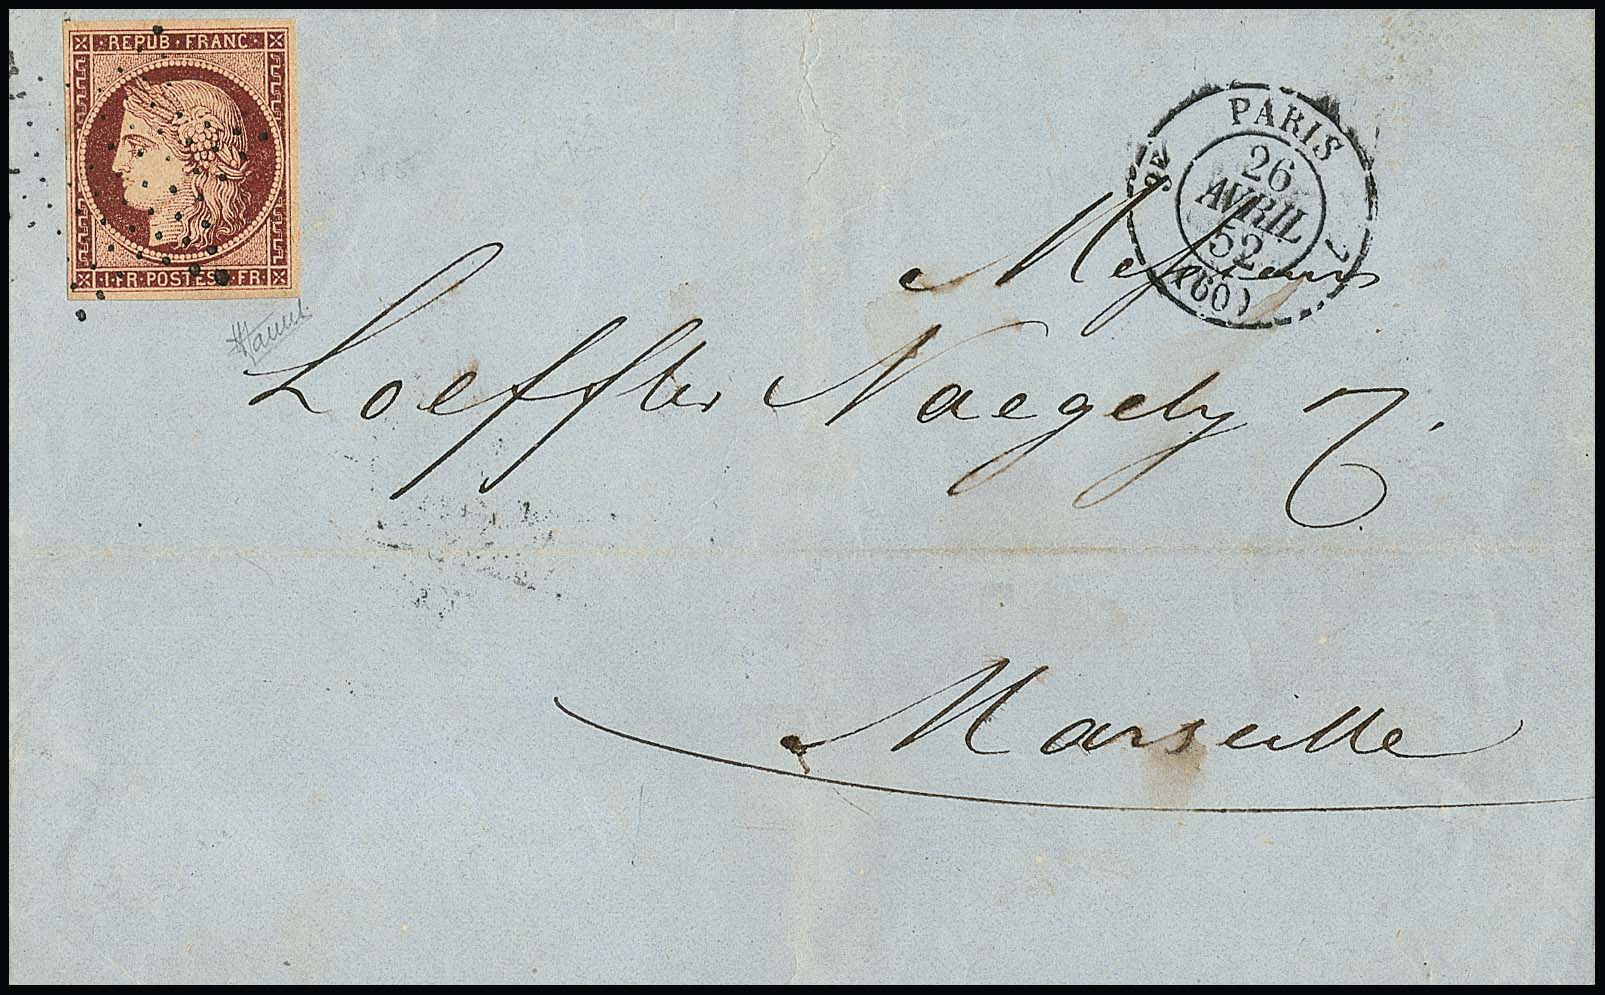 REPUB · FRANC
1 · FR · POSTES · 1 · FR ·
PARIS
26
AVRIL
52
(60)
Messieurs
Loeffler Naegely
Marseille